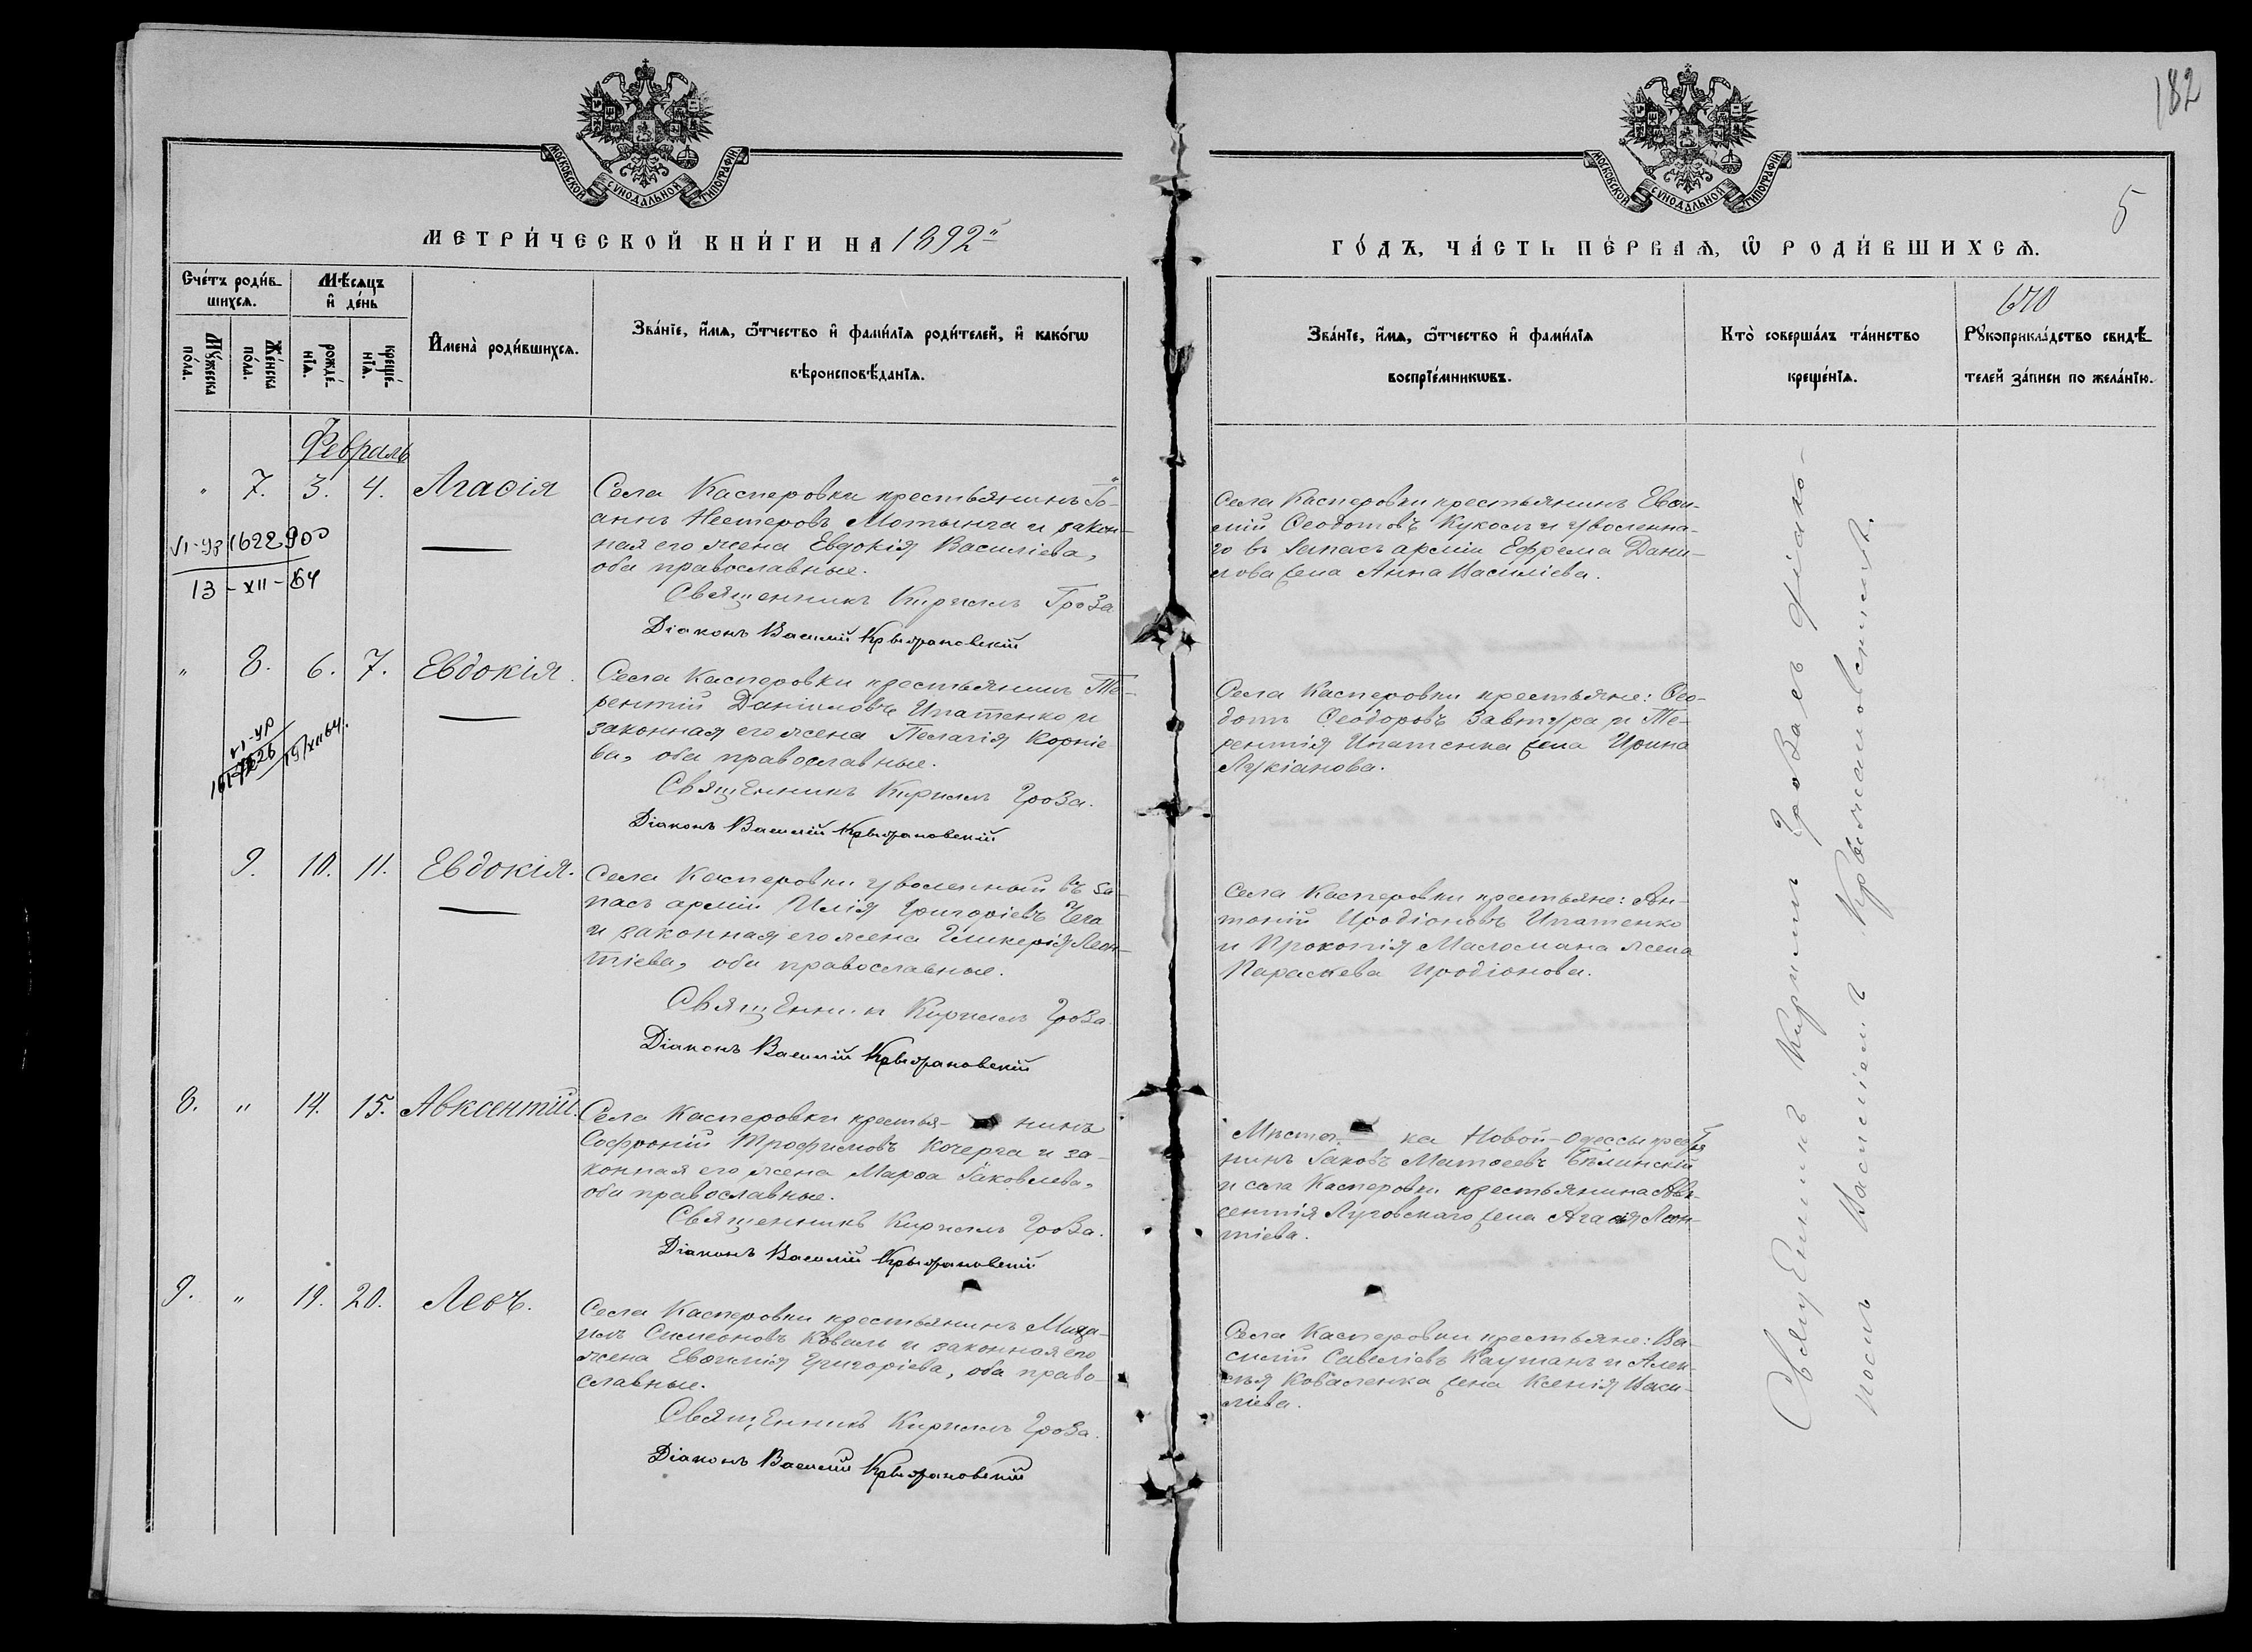 182
5
МОСКОВСКОЙ СѴНОДАЛЬНОЙ ТИПОГРАФІИ
МОСКОВСКОЙ СѴНОДАЛЬНОЙ ТИПОГРАФІИ
МЕТРИ́ЧЕСКОЙ КНИ́ГИ НА 1892й
ГО́ДЪ, ЧА́СТЬ ПЕ́РВАѦ, Ѿ РОДИ́ВШИХСѦ.
Счétъ роди́в-
шихсѧ.
Мꙋ́жеска по́ла.
Же́нска по́ла.
Мѣ́сѧцъ
и҆ де́нь
рожде́-
нїѧ.
креще́-
нїѧ.
И҆мена̀ роди́вшихсѧ.
Зва́нїе, и҆́мѧ, ѻ҆́тчество и҆ фами́лїѧ роди́телей, и҆ како́гѡ
вѣроисповѣ́данїѧ.
Зва́нїе, и҆́мѧ, ѻ҆́тчество и҆ фами́лїѧ
воспрїе́мникѡвъ.
Кто̀ соверша́лъ та́инство
креще́нїѧ.
Рꙋкоприкла́дство свидѣ́-
телей за́писи по жела́нїю.
Февраль
" 7. 3. 4. Агаѳія
Села Касперовки крестьянинъ Іо-
аннъ Нестеровъ Мотынга и закон-
ная его жена Евдокія Василіева,
оба православные.
Священникъ Кириллъ Гроза
Діаконъ Василій
Села Касперовки крестьянинъ Евѳи-
мій Ѳеодотовъ Куколь и уволенна-
го въ запасъ арміи Ефрема Дани-
лова жена Анна Василіева.
13-XII-64
" 8. 6. 7. Евдокія.
Села Касперовки крестьянинъ Те-
рентій Даниловъ Ипатенко и
законная его жена Пелагія Корніе-
ва, оба православные.
Священникъ Кириллъ Гроза.
Діаконъ Василій
Села Касперовки крестьяне: Ѳео-
дотъ Ѳеодоровъ Завтура, и Те-
рентія Ипатенка жена Ирина
Лукіанова.
9. 10. 11. Евдокія.
Села Касперовки уволенный въ за-
пасъ арміи Илія Григоріевъ Чега
и законная его жена Гликерія Леон-
тіева, оба православные.
Священникъ Кириллъ Гроза.
Діаконъ Василій
Села Касперовки крестьяне: Ан-
тоній Иродіоновъ Ипатенко
и Прокопія Масломана жена
Параскева Иродіонова.
8. " 14. 15. Авксентій.
Села Касперовки крестья- нинъ
Софроній Трофимовъ Кочерга и за-
конная его жена Марѳа Іаковлева,
оба православные.
Священникъ Кириллъ Гроза.
Діаконъ Василій
Мѣстеч- ка Новой-Одессы
нинъ Іаковъ Матѳеевъ Бѣлинскій
и села Касперовки крестьянина Авк-
сентія Луговскаго жена Агаѳія Леон-
тіева.
9. " 19. 20. Левъ.
Села Касперовки крестьянинъ Миха-
илъ Симеоновъ Коваль и законная его
жена Евѳимія Григоріева, оба право-
славные.
Священникъ Кириллъ Гроза.
Діаконъ Василій
Села Касперовки крестьяне: Ва-
силій Савеліевъ Кауманъ и Алек-
сѣя Коваленка жена Ксенія Васи-
ліева.
Священникъ Кириллъ Гроза съ діако-
номъ Василіемъ